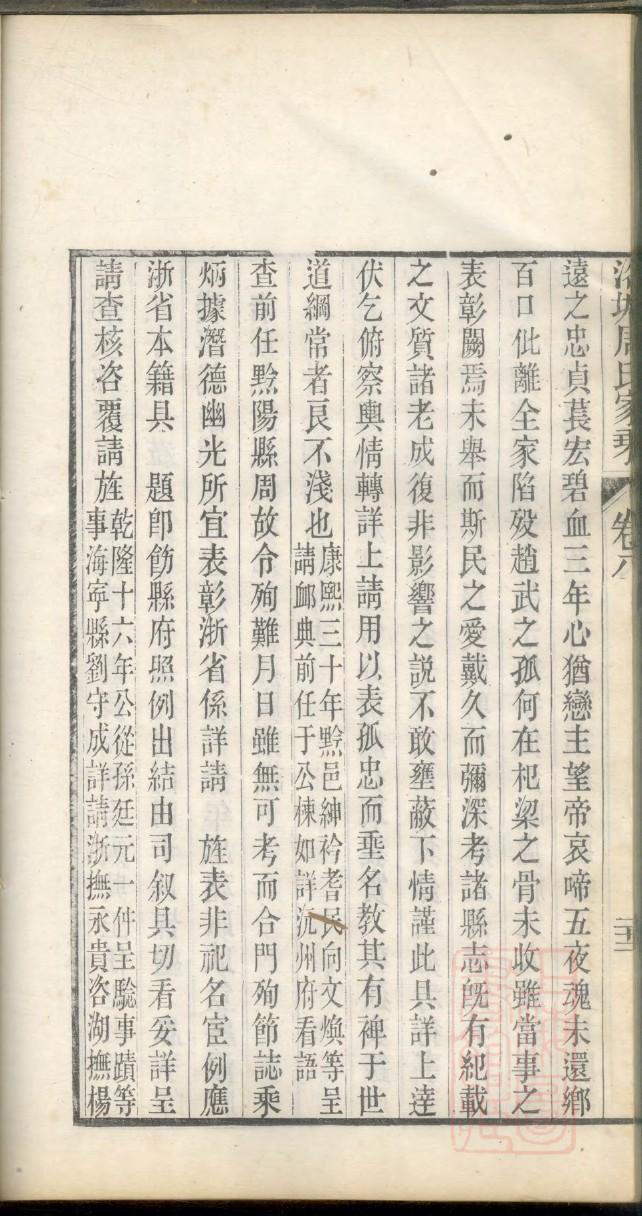 周氏家乘
卷六
遠之忠貞萇宏碧血三年心猶戀主望帝哀啼五夜魂未還鄉
百口仳離全家陷殁趙武之孤何在杞梁之骨未收雖當事之
表彰闕焉未舉而斯民之愛戴久而彌深考諸縣志旣有紀載
之文質諸老成復非影響之説不敢壅蔽下情謹此具詳上達
伏乞俯察輿情轉詳上請用以表孤忠而埀名教其有裨于世
道綱常者良不淺也
康熙三十年黔邑紳衿耆民向文煥等呈
請䘏典前任于公棟如詳沅州府看語
查前任黔陽縣周故令殉難月日雖無可考而合門殉節誌乘
炳據潛德幽光所宜表彰浙省係詳請 旌表非祀名宦例應
浙省本籍具 題卽飭縣府照例出結由司叙具切看妥詳呈
請查核咨覆請旌
乾隆十六年公從孫廷元一件呈驗事蹟等
事海寧縣劉守成詳請浙撫永貴咨湖撫楊